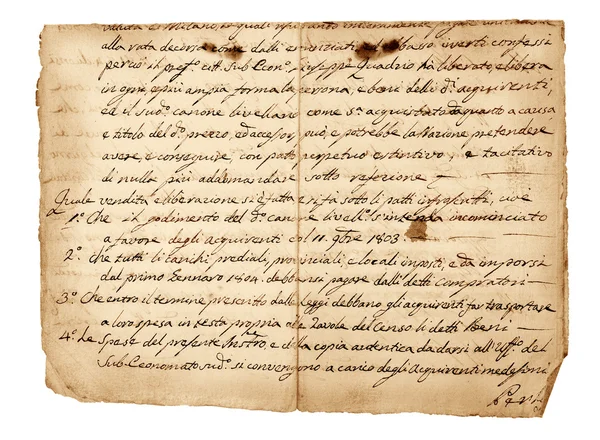 alla rata decorsa come dalli enunciati ed abbasso inserti confessi
perciò il pref.º citt. Sub. Econ.º Giuseppe Quadrio ha liberato, e libera
in ogni, e più ampia forma la persona, e beni delli d.ⁱ acquirenti,
ed il sud.º canone livellario come s.ª acquistato da quanto a causa,
e titolo del d.º prezzo, ed accessorj può, e potrebbe la Nazione pretendere
avere, e conseguire, con patto perpetuo estintivo, e tacitativo
di nulla più addomandare sotto refezione
Quale vendita e liberazione si è fatta e si fa sotto li patti infrascritti, cioè
1.º Che il godimento del d.º canone livell.º s'intenda incominciato
a favore degli acquirenti col 11. 9bre 1803.
2.º che tutti li carichi prediali, provinciali, e locali imposti, e da imporsi
dal primo Gennaro 1804. debbansi pagare dalli detti compratori
3.º Che entro il termine prescritto dalle Leggi debbano gli acquirenti far trasportare
a loro spesa in testa propria alle Tavole del Censo li detti Beni
4.º Le spese del presente Instro e della copia autentica da darsi all'Uff.º del
Sub-Economato sud.º si convengono a carico degli Acquirenti medesimi